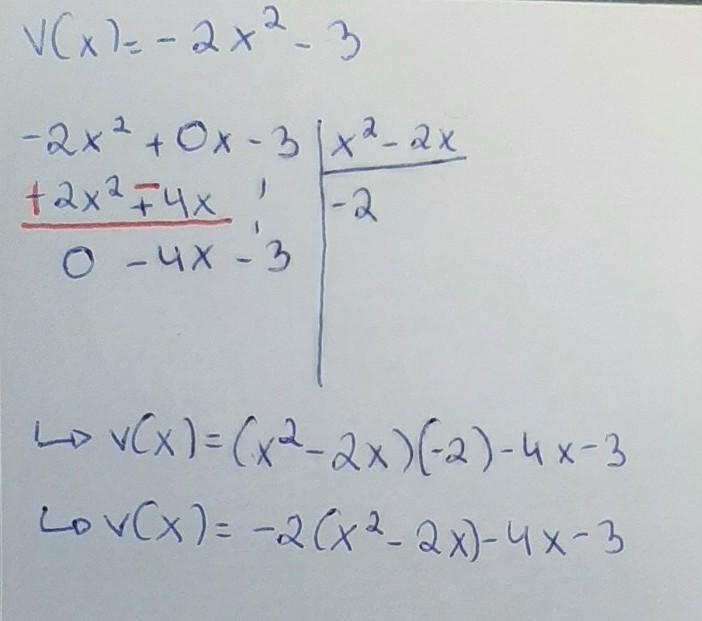 V(x)=-2x²-3
-2x²+0x-3 | x²-2x
+2x²-4x | -2
0 -4x-3
↳ v(x)=(x²-2x)(-2)-4x-3
↳ v(x)= -2(x²-2x)-4x-3